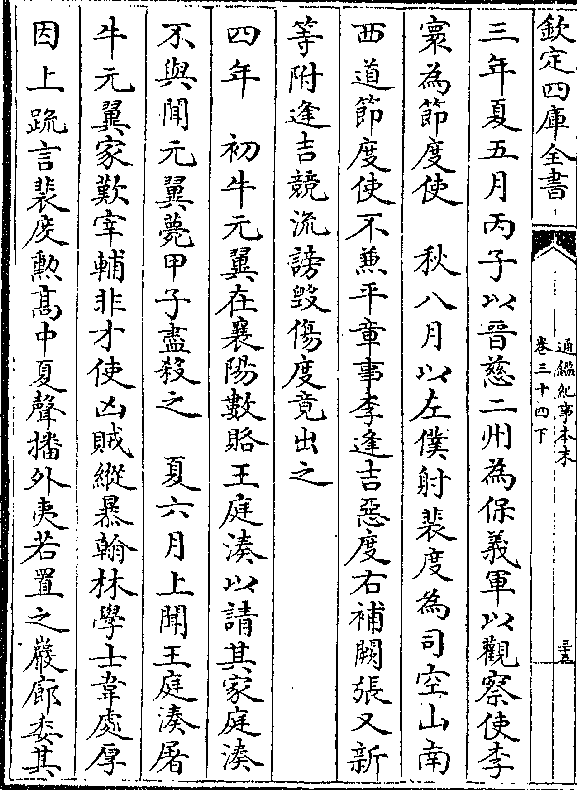 欽定四庫全書
通鑑紀事本末
卷三十四下
三年夏五月丙子以晉慈二州為保義軍以觀察使李
寰為節度使　秋八月以左僕射裴度為司空山南
西道節度使不兼平章事李逢吉惡度右補闕張又新
等附逢吉競流謗毀傷度竟出之
四年　初牛元翼在襄陽數賂王庭湊以請其家庭湊
不與聞元翼薨甲子盡殺之　夏六月上聞王庭湊屠
牛元翼家歎宰輔非才使凶賊縱暴翰林學士韋處厚
因上疏言裴度勲高中夏聲播外夷若置之巖廊委其